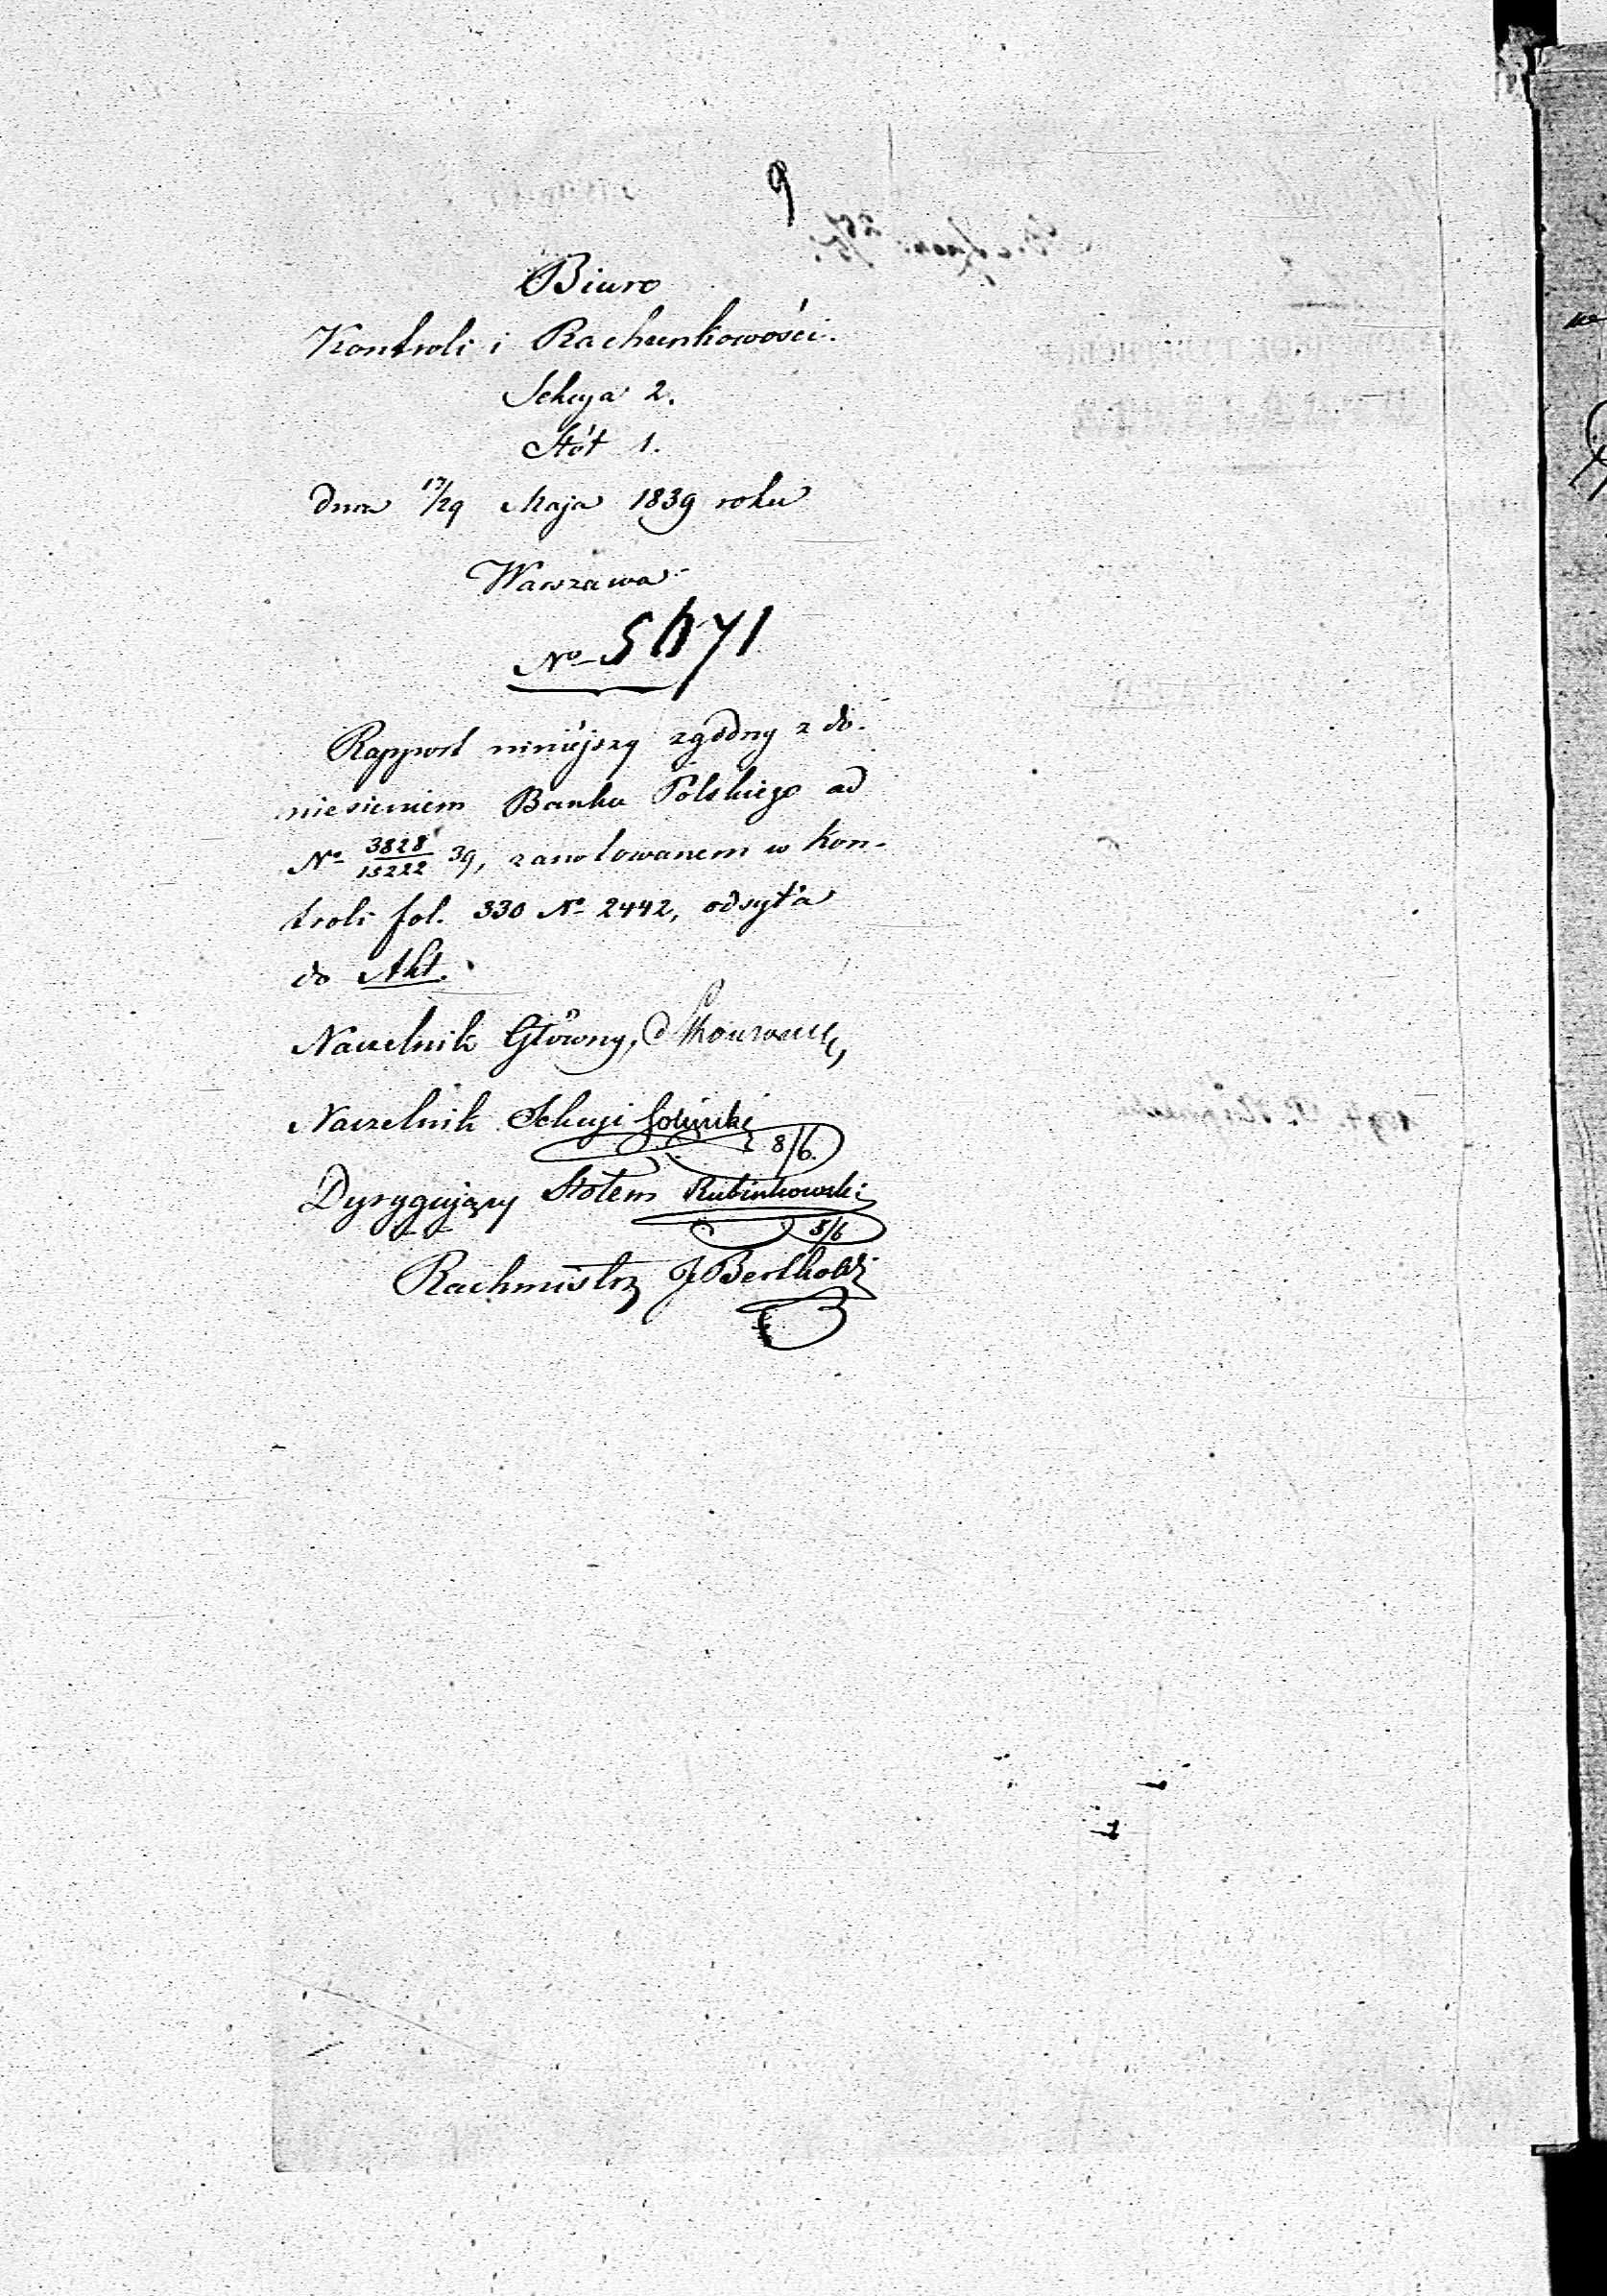 9
Biuro
Kontroli i Rachunkowości.
Sekcya 2.
Stół 1.
dnia 17/29 Maja 1839 roku
Warszawa
No 5471
Rapport niniéjszy zgodny z do-
niesieniem Banku Polskiego ad
No 3828/15222 39, zanotowanem w kon-
troli fol. 330 No 2442, odsyła
do Akt.
Naczelnik Główny,
Naczelnik Sekcyi
8/6.
Dyrygujący Stołem Rubinkowski
8/6
Rachmistrz J Berthold